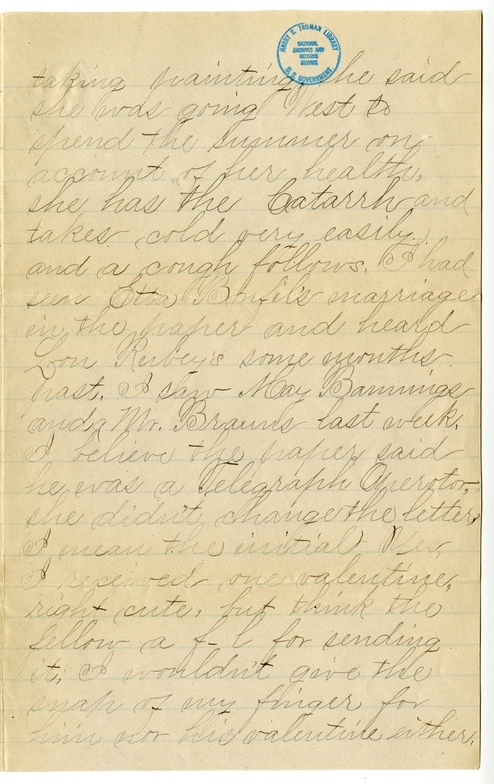 HARRY S. TRUMAN LIBRARY
NATIONAL
ARCHIVES AND
RECORDS
SERVICE
U.S. GOVERNMENT
taking painting, she said
she was going West to
spend the summer on
account of her health,
she has the Catarrh and
takes cold very easily
and a cough follows. I had
seen Etta Bonfil's marriage
in the paper and heard
Lon Rubey's some months
past. I saw May Bannings
and a Mr. Brauns last week.
I believe the paper said
he was a Telegraph Operator,
she didn't change the letter,
I mean the initial. Yes,
I received one valentine,
right cute, but think the
fellow a f-l for sending
it, I wouldn't give the
snap of my finger for
him nor his valentine either.